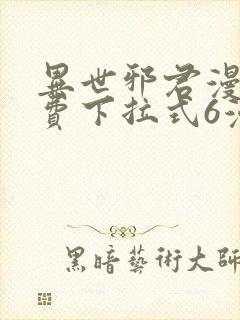 異世邪君漫
費下拉式6漫
黑暗藝術大師